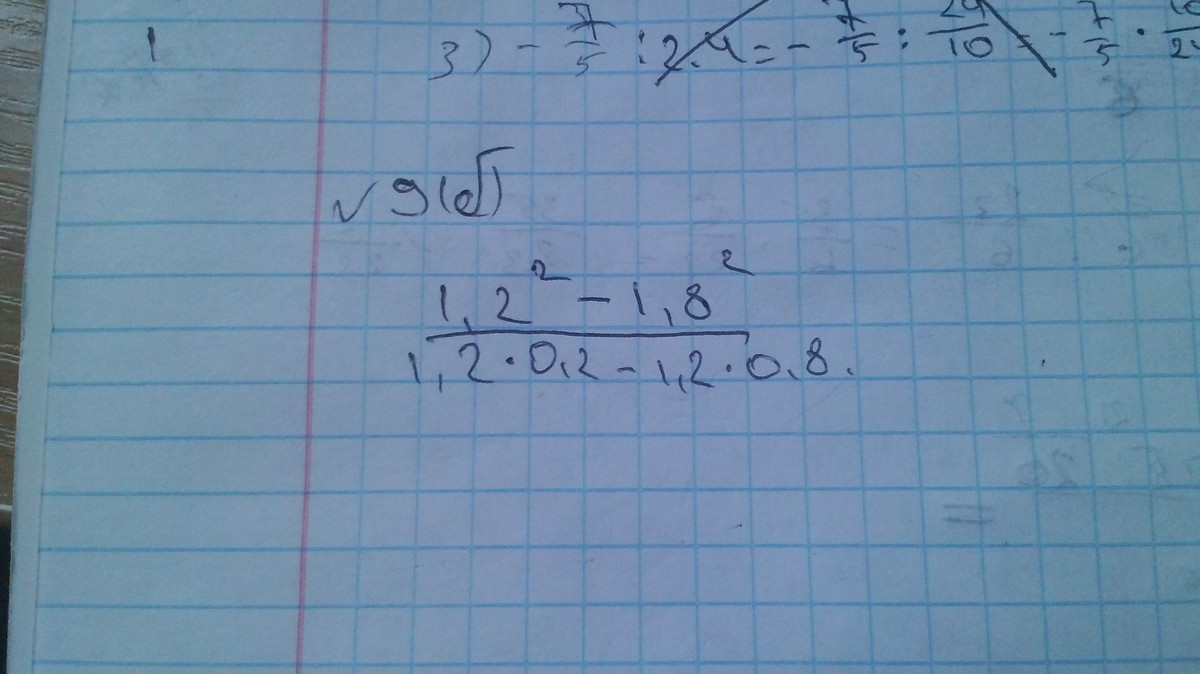 3) - 7/5 : 2.4 = - 7/5 : 24/10 - 7/5 ·
√ 9(б)
1,2² - 1,8²
1,2 · 0,2 - 1,2 · 0,8.